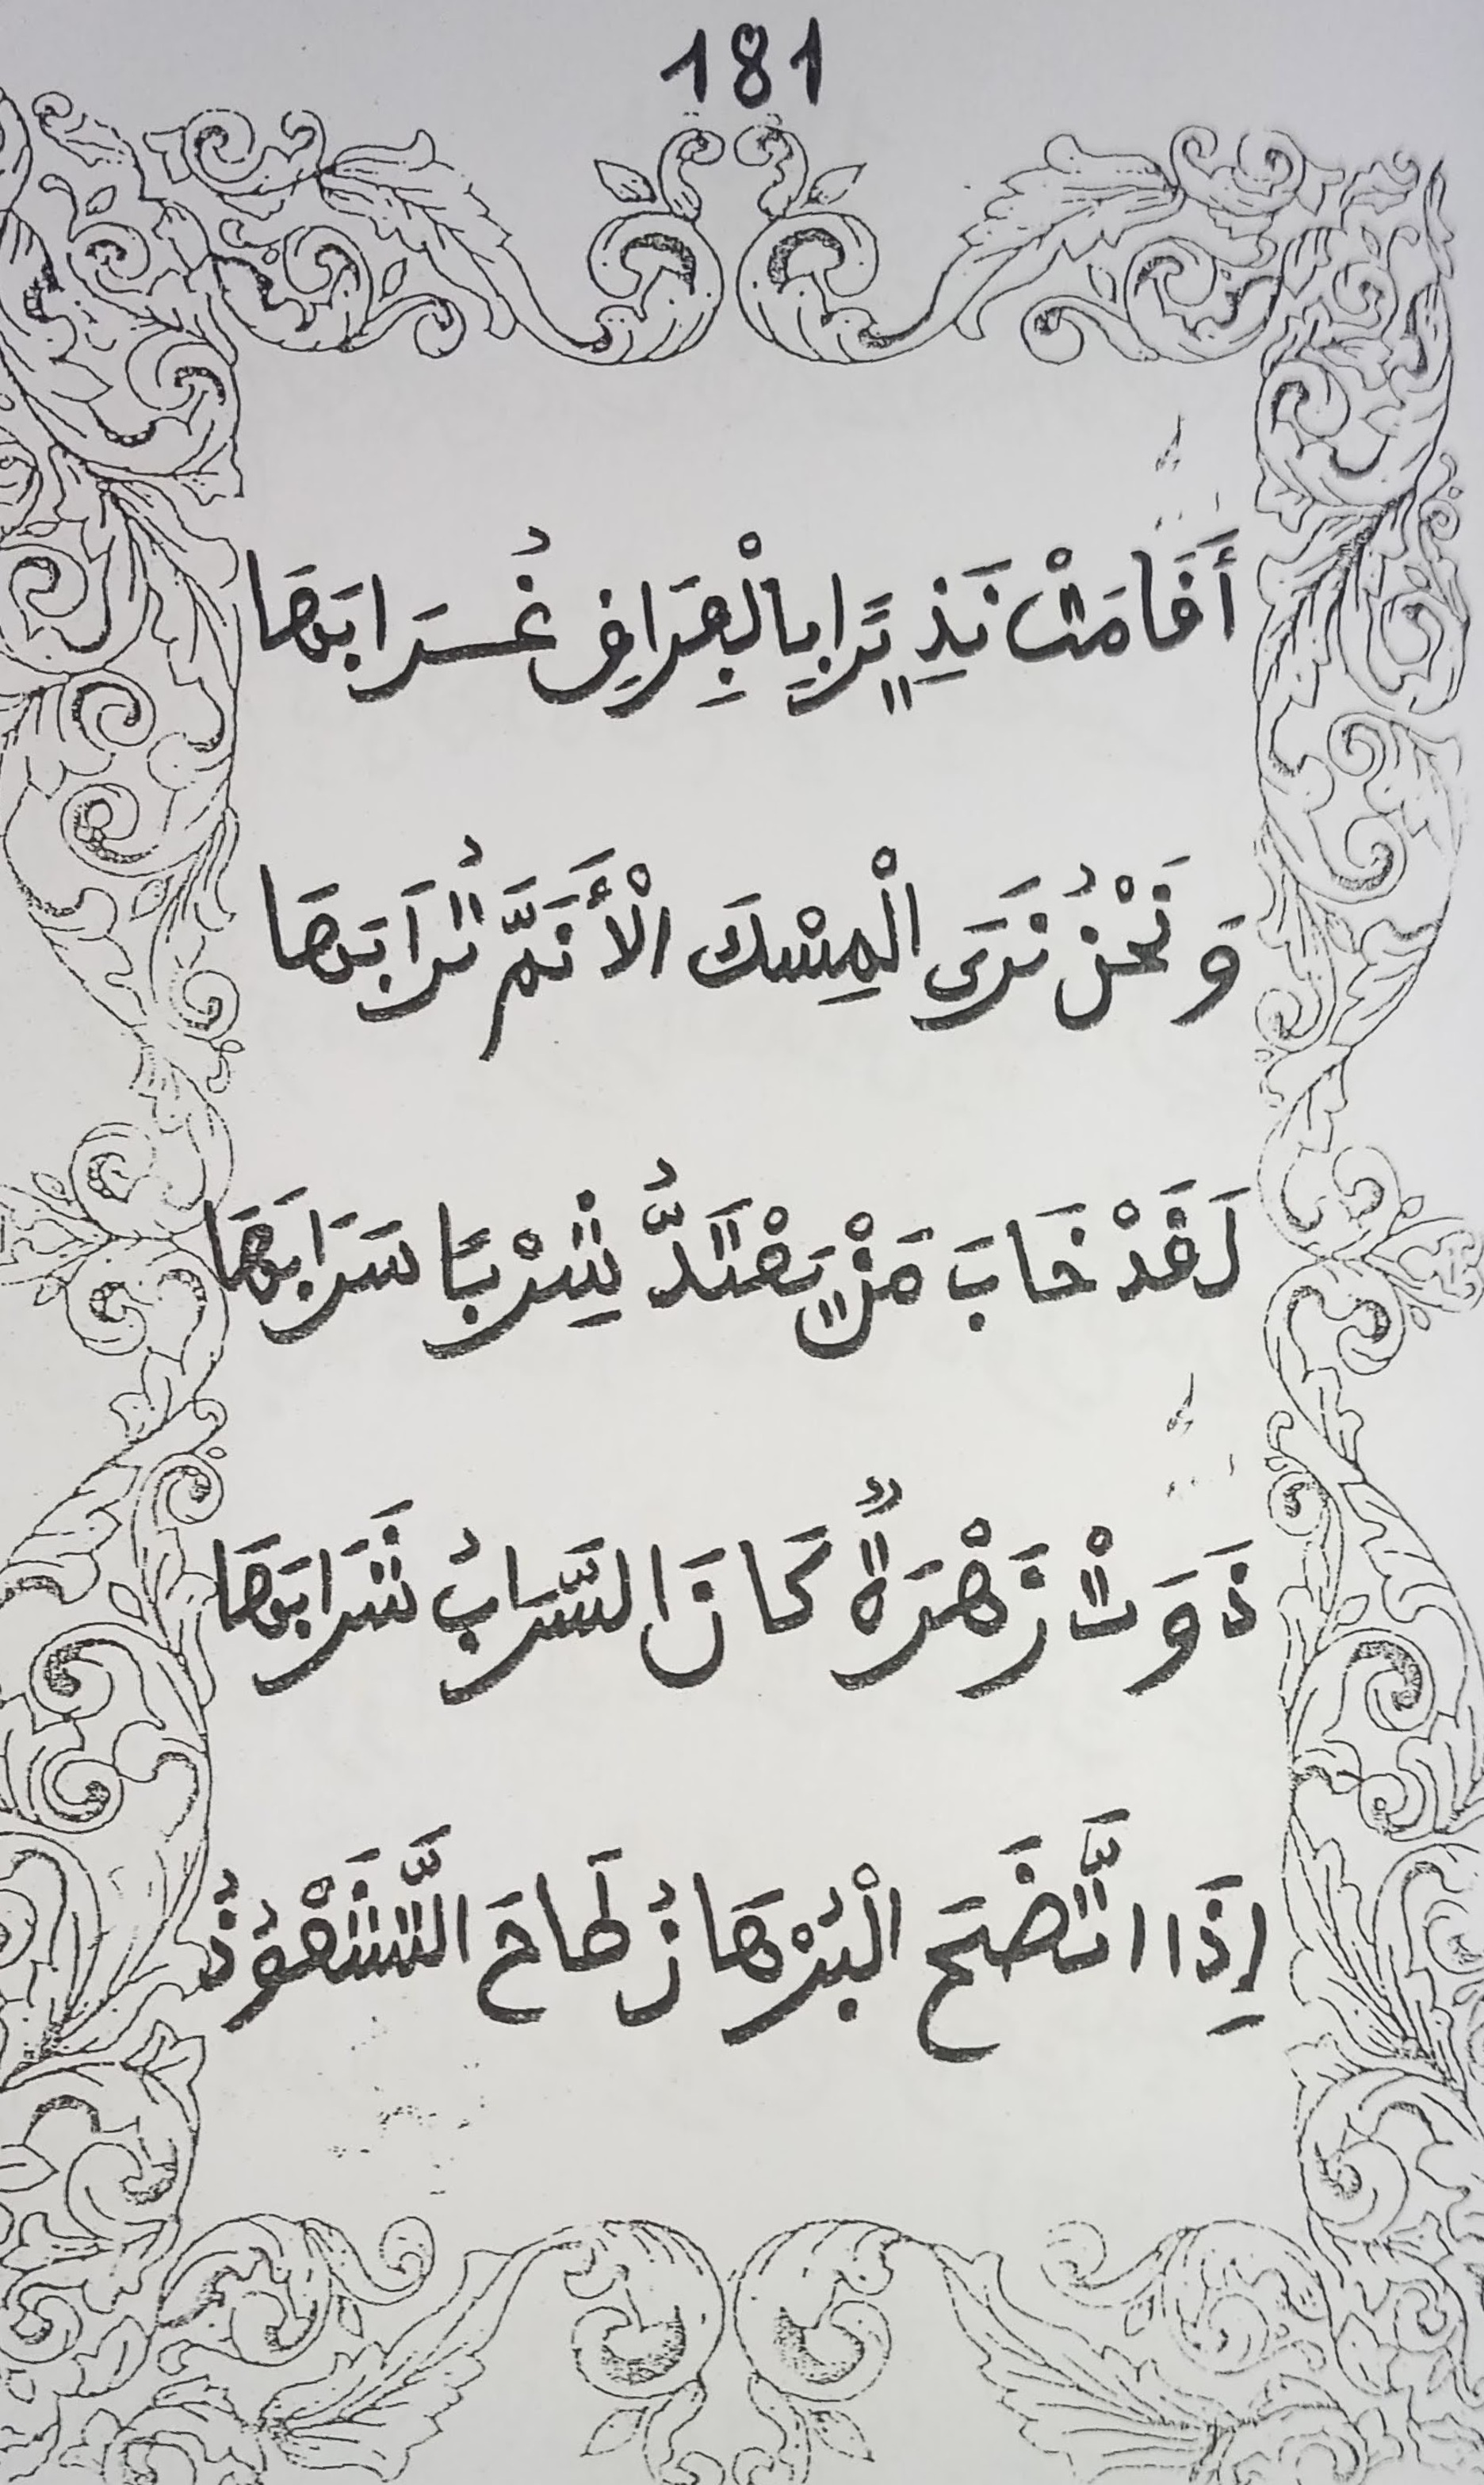 181
أَقَامَتْ نَذِيرًا بِالْفِرَاقِ غُرَابَهَا
وَنَحْنُ نَرَى الْمِسْكَ الْأَنَمَّ تُرَابَهَا
لَقَدْ خَابَ مَنْ يَعْتَدُّ شِرْبًا سَرَابَهَا
ذَوَتْ زَهْرَةٌ كَانَ السَّرَابُ شَرَابَهَا
إِذَا اتَّضَحَ الْبُرْهَانُ طَاحَ التَّشَعْوُذُ